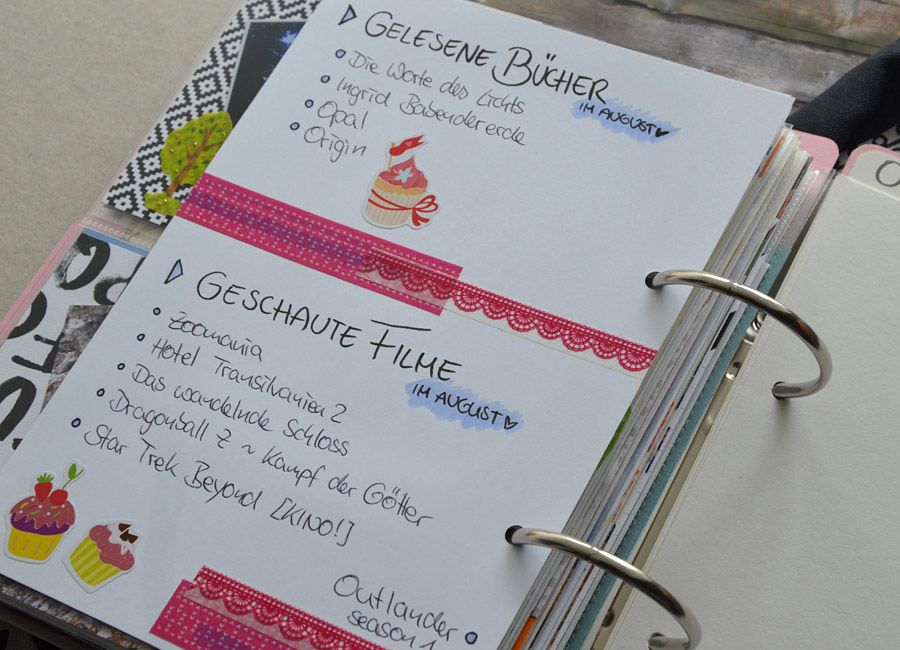 GELESENE BÜCHER
IM AUGUST
Die Worte des Lichts
Ingrid Babendererde
Opal
Origin
GESCHAUTE FILME
IM AUGUST
Zoomania
Hotel Transilvanien 2
Das wandelnde Schloss
Dragonball Z ~ Kampf der Götter
Star Trek Beyond [KINO!]
Outlander
season 1